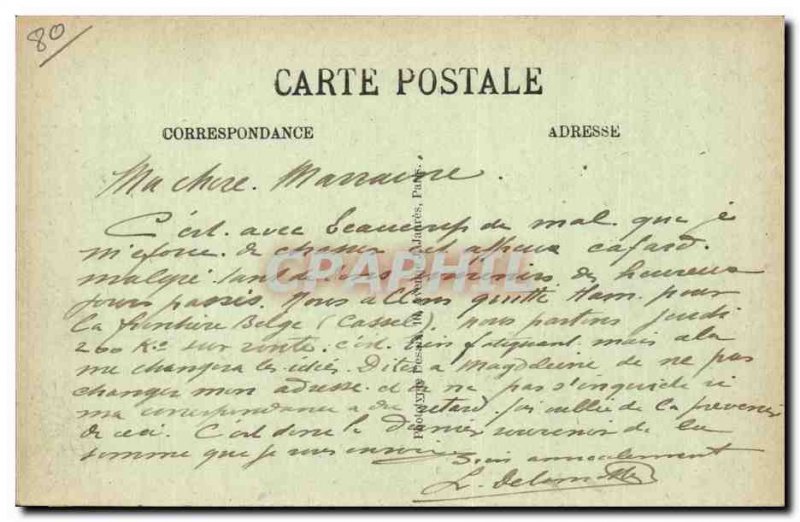 80
CARTE POSTALE
CORRESPONDANCE
ADRESSE
Ma chere. Marraine.
C'est avec beaucoup de mal que je
m'eforce de chasser cet affreux cafard.
malgré tant de souvenirs des heureux
jours passés. Nous allons quitté Ham. pour
la frontière Belge (Cassel). nous partons jeudi
200 Km sur route. c'est bien fatiguant mais cela
me changera les idées. Dites a Magdeleine de ne pas
changer mon adresse. et de ne pas s'inquiété si
ma correspondance a du retard. j'ai oublié de la prévenir
de ceci. C'est donc le Dernier souvenir de la
somme que je vous envoie
L. Delamotte
Phototypie Jaurès, Paris.
CPAPHIL